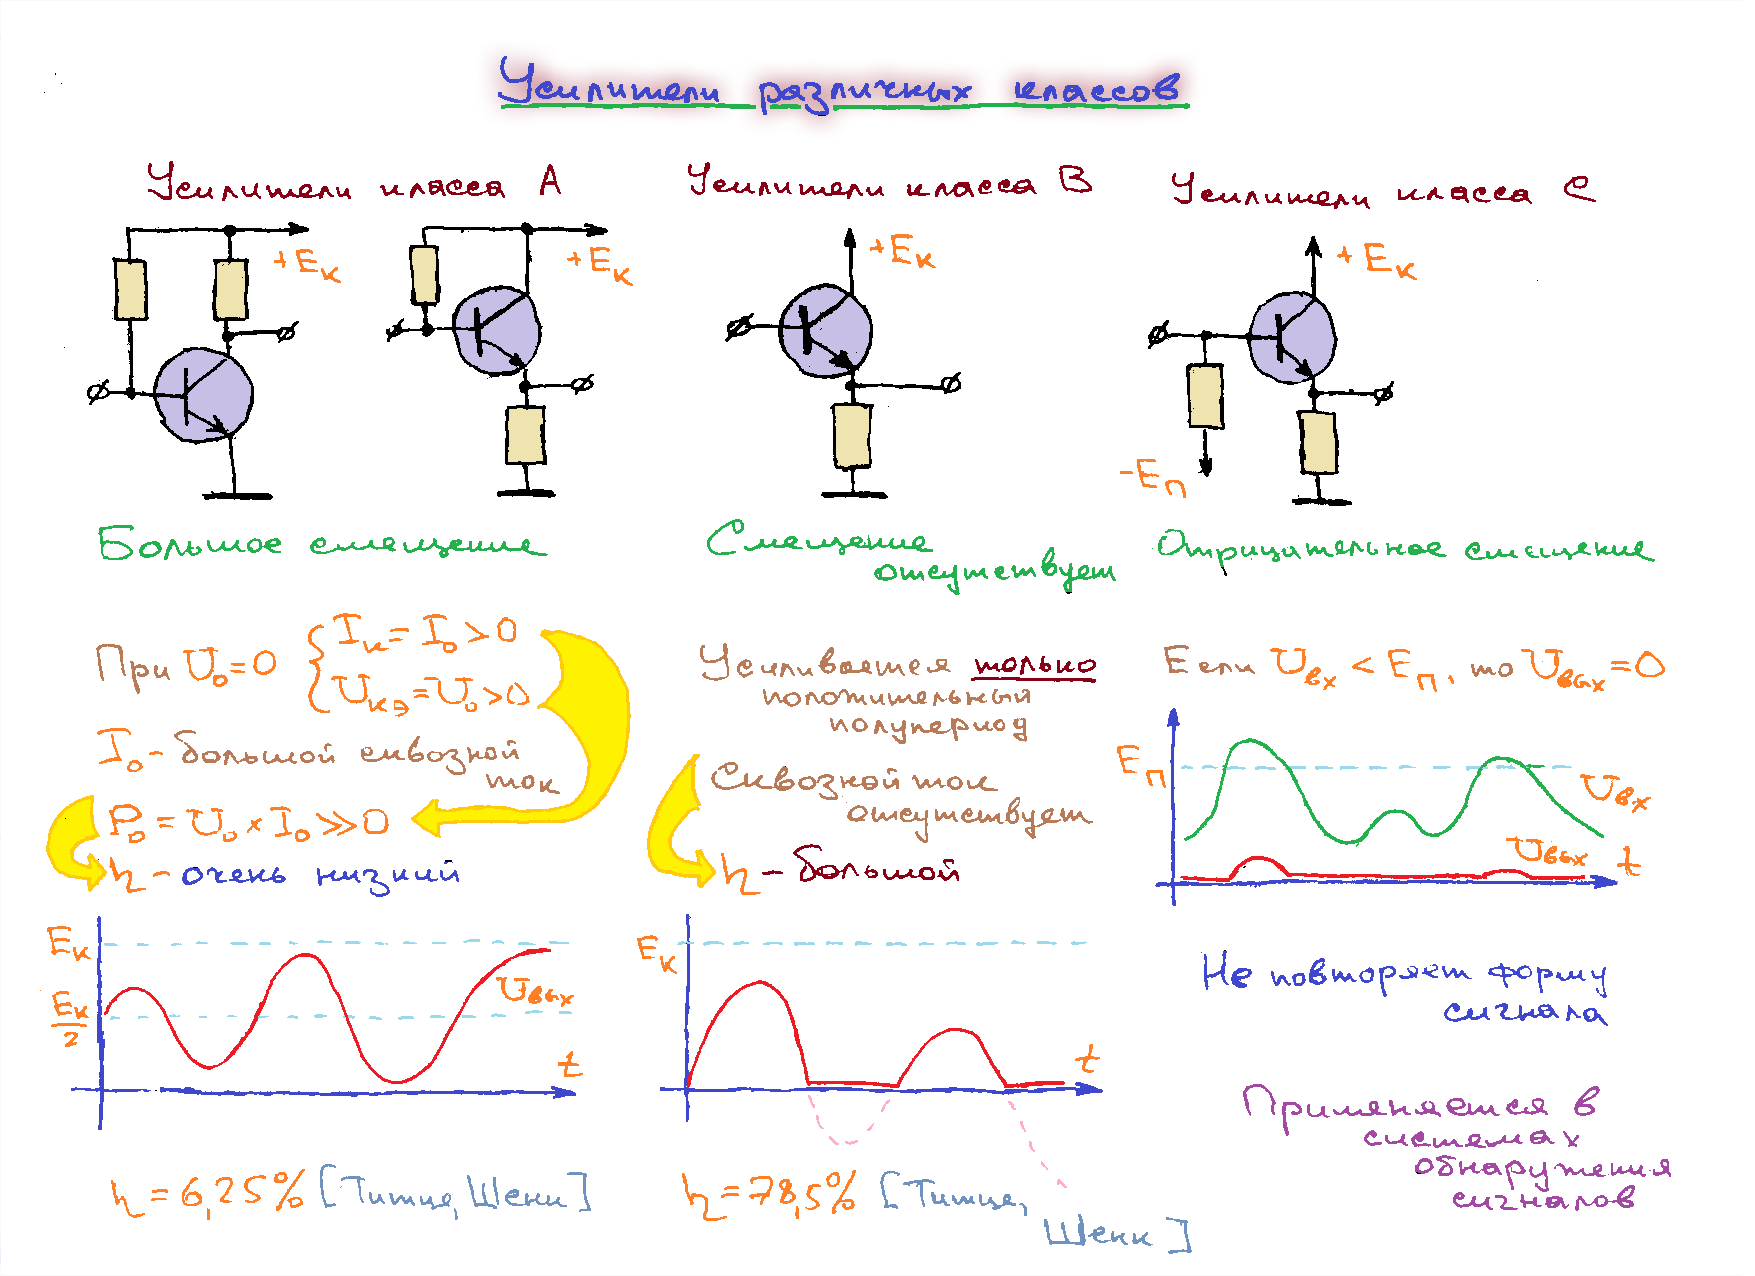 Усилители различных классов
Усилители класса А
+Eк
+Eк
Большое смещение
При U₀=0 { Iк = I₀ > 0
Uкэ = U₀ > 0
I₀ - большой сквозной
ток
P₀ = U₀ × I₀ >> 0
η - очень низкий
Eк
Eк/2
Uвых
t
η = 6,25% [Титце, Шенк]
Усилители класса В
+Eк
Смещение
отсутствует
Усиливается только
положительный
полупериод
Сквозной ток
отсутствует
η - большой
Eк
t
η = 78,5% [Титце,
Шенк]
Усилители класса С
+Eк
-Eп
Отрицательное смещение
Если Uвх < Eп, то Uвых = 0
Eп
Uвх
Uвых
t
Не повторяет форму
сигнала
Применяется в
системах
обнаружения
сигналов